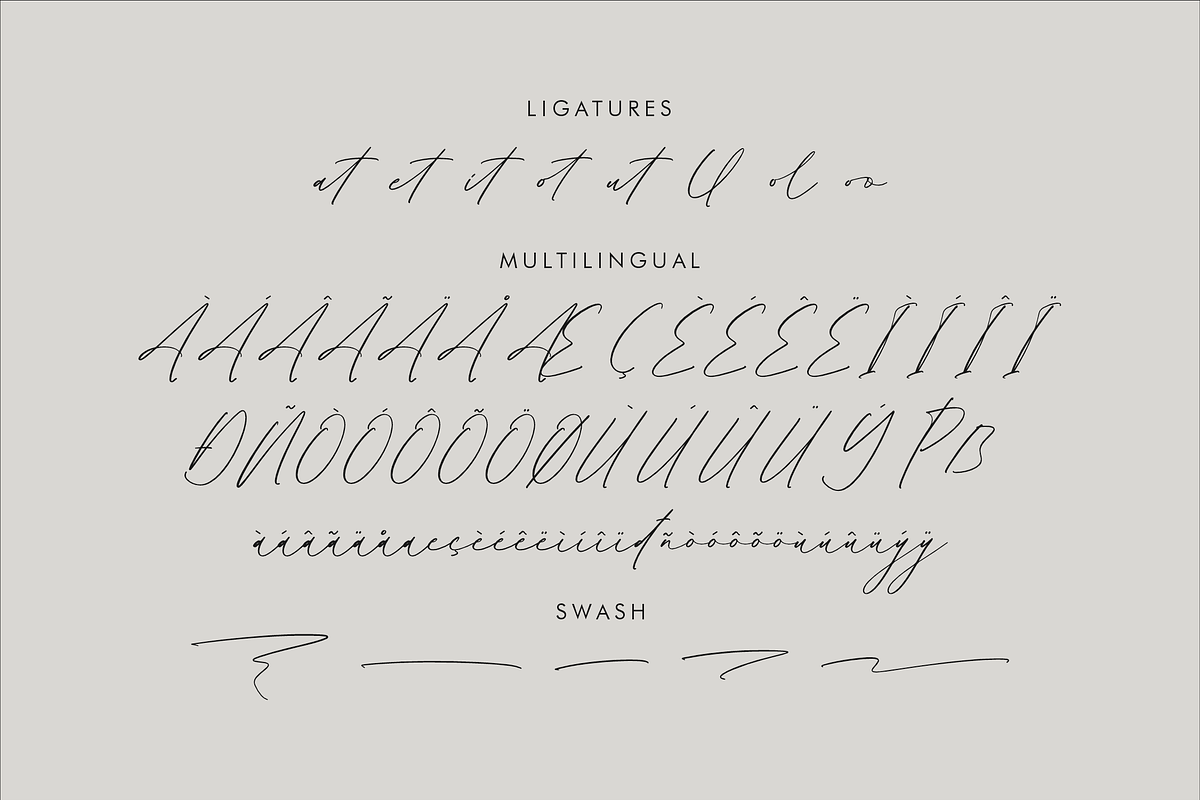 LIGATURES
at et it ot ut ll ol oo
MULTILINGUAL
ÀÁÂÃÄÅÆÇÈÉÊËÌÍÎÏ
ÐÑÒÓÔÕÖØÙÚÛÜÝÞß
àáâãäåæçèéêëìíîïđñòóôõöùúûüýÿ
SWASH